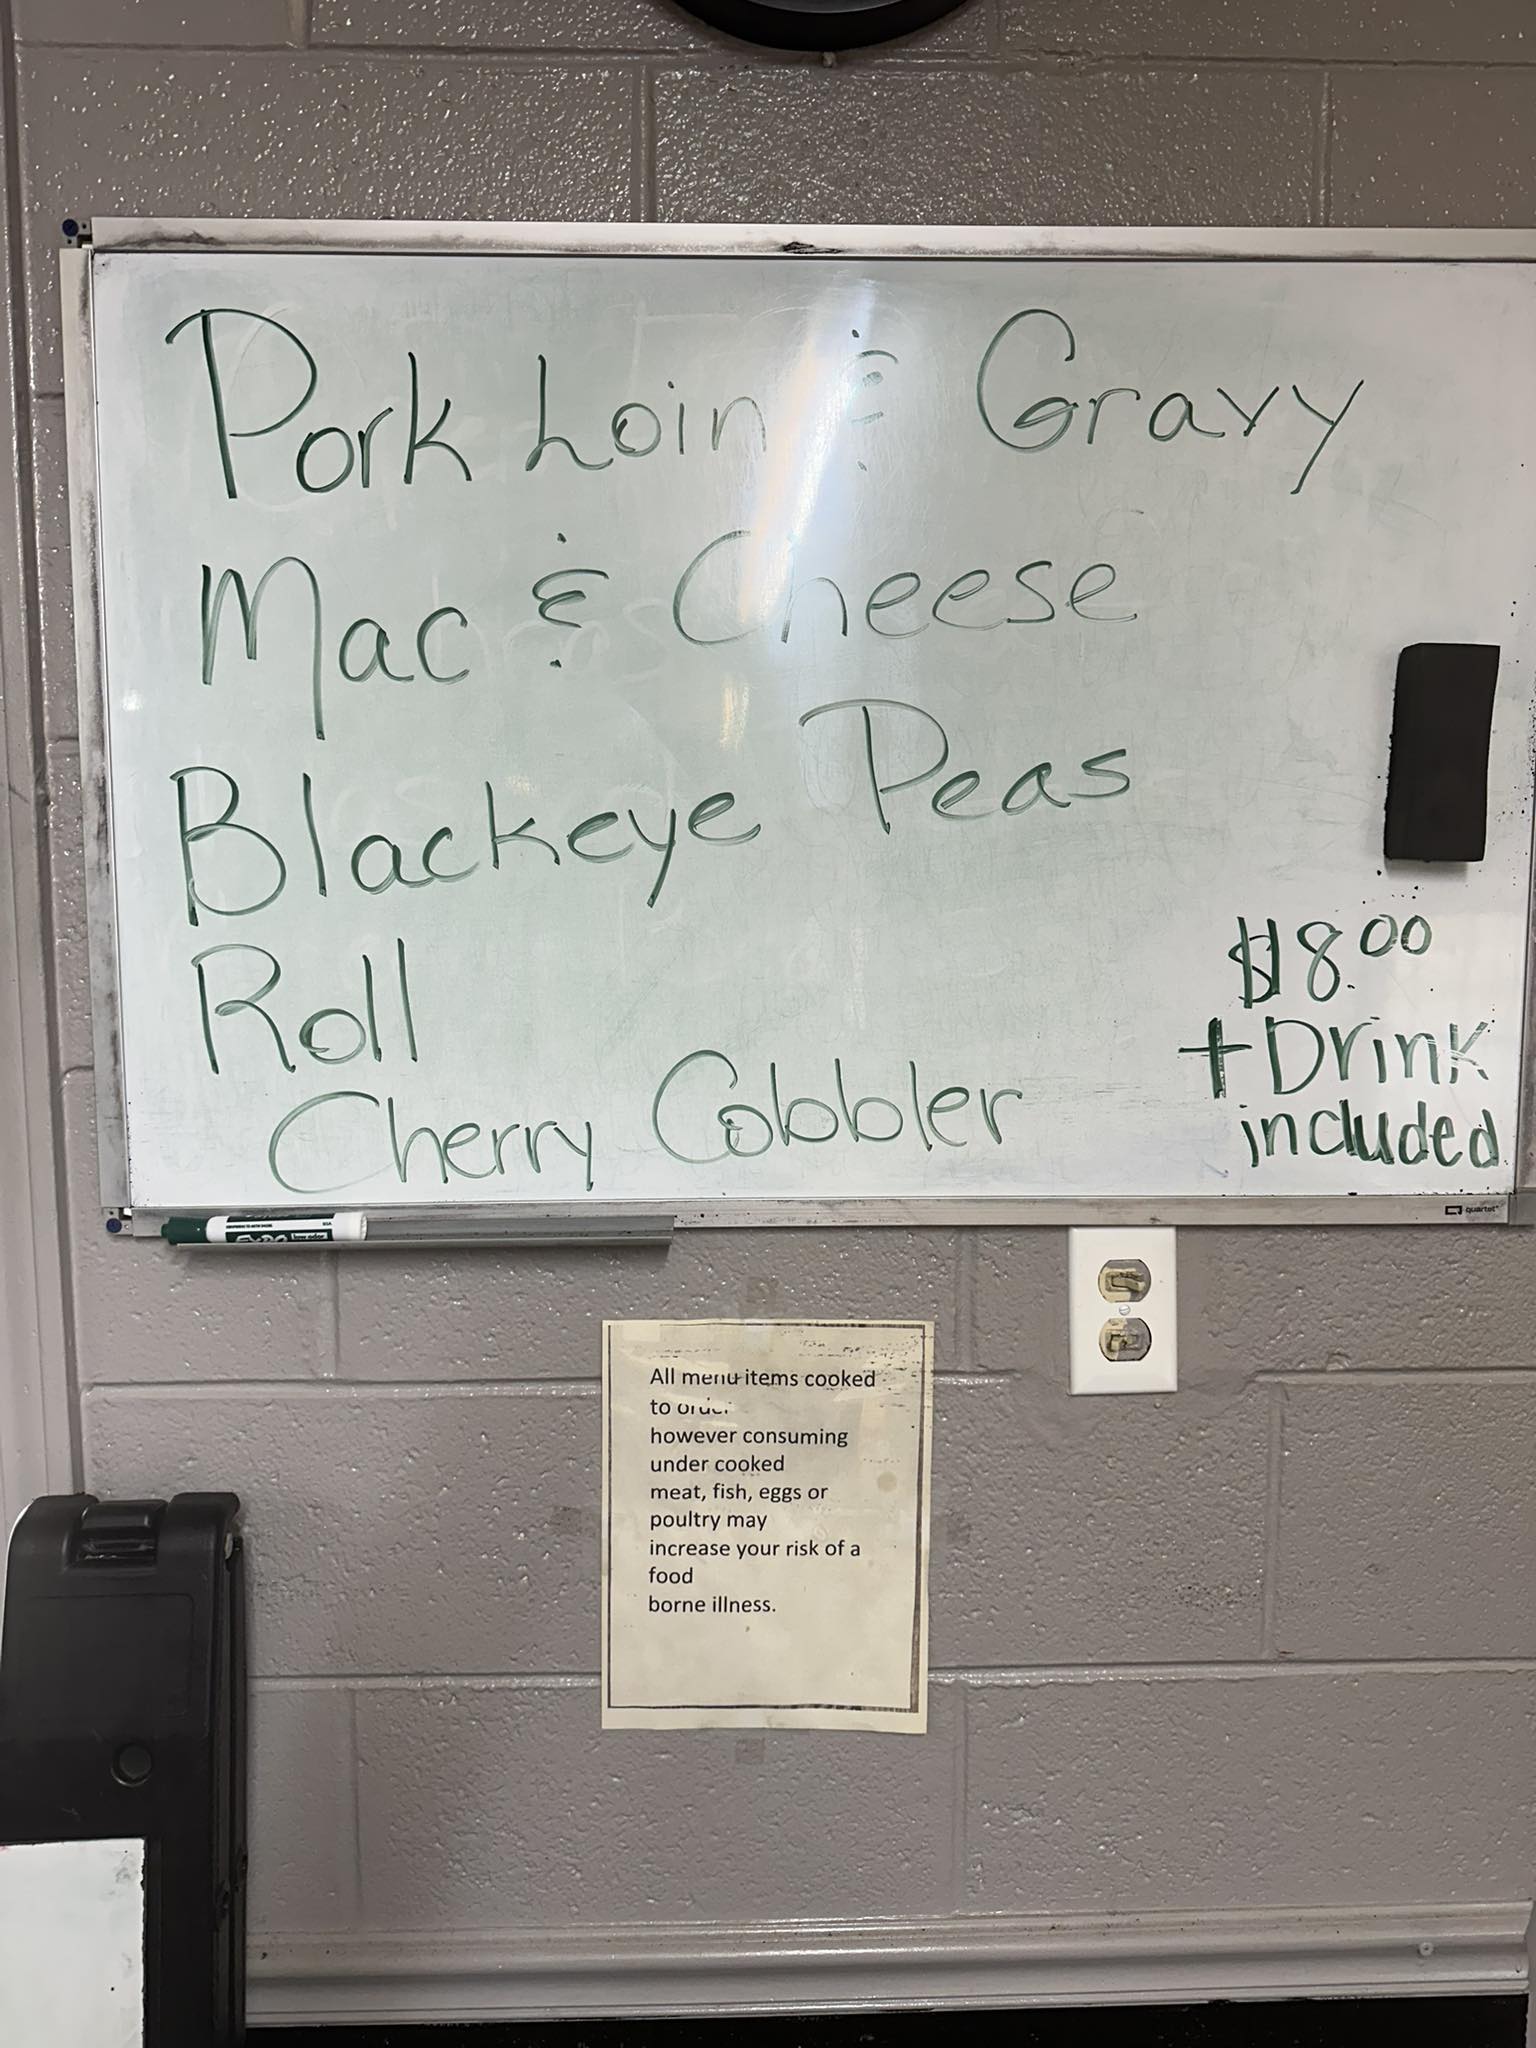 Pork Loin & Gravy
Mac & Cheese
Blackeye Peas
Roll
Cherry Cobbler
$8.00
+ Drink
included
quartet
EXPO low odor
All menu items cooked
to
however consuming
under cooked
meat, fish, eggs or
poultry may
increase your risk of a
food
borne illness.